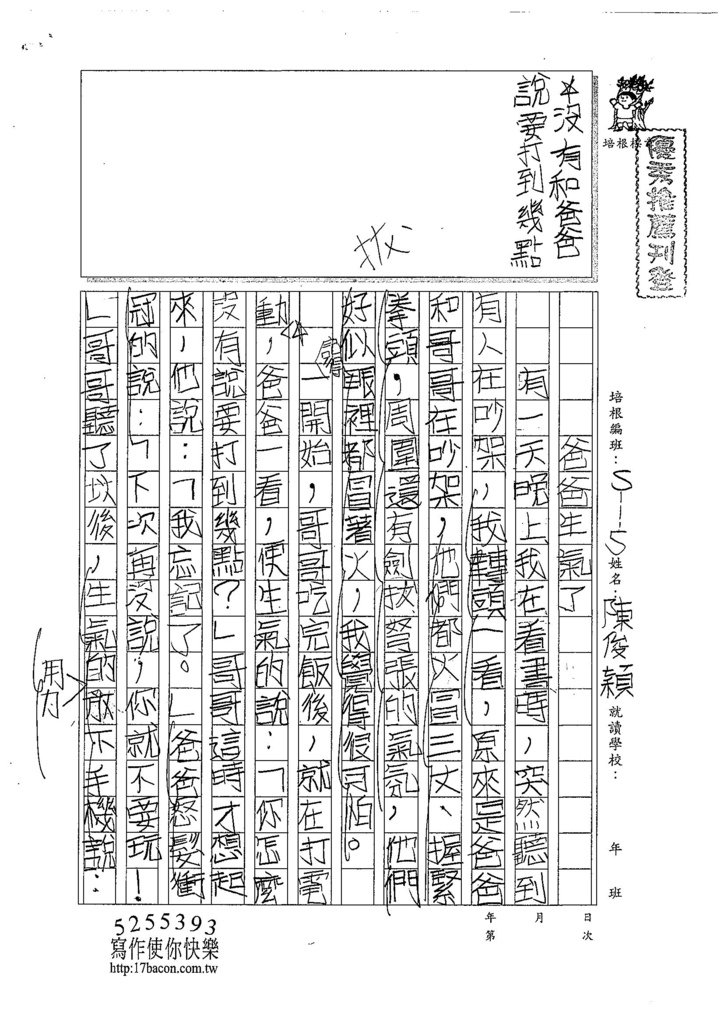 ＊沒有和爸爸
說要打到幾點
拔
培根樣
優秀推薦刊登
培根編班：S-115 姓名：陳俊穎 就讀學校： 年 班
年 月 日
第 次
爸爸生氣了
有一天晚上我在看書時，突然聽到
有人在吵架，我轉頭一看，原來是爸爸
和哥哥在吵架，他們都火冒三丈、握緊
拳頭，周圍還有劍拔弩張的氣氛，他們
好似眼裡都冒著火，我覺得很可怕。
一開始，哥哥吃完飯後，就在打電
動，爸爸一看，便生氣的說：「你怎麼
沒有說要打到幾點？」哥哥這時才想起
來，他說：「我忘記了。」爸爸怒髮衝
冠的說：「下次再沒說，你就不要玩！
」哥哥聽了以後，生氣的放下手機說：
用力
5255393
寫作使你快樂
http:17bacon.com.tw